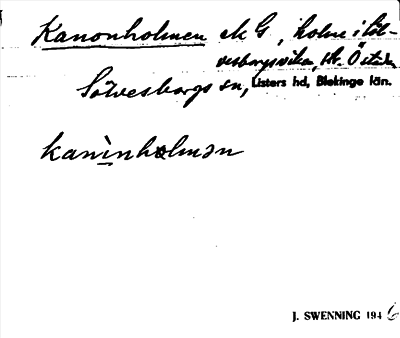 Kanonholmen ek G, holme i Söl-
vesborgsviken,
Sölvesborgs sn, Listers hd, Blekinge län.
kanìnhɷlmən
J. SWENNING 1946